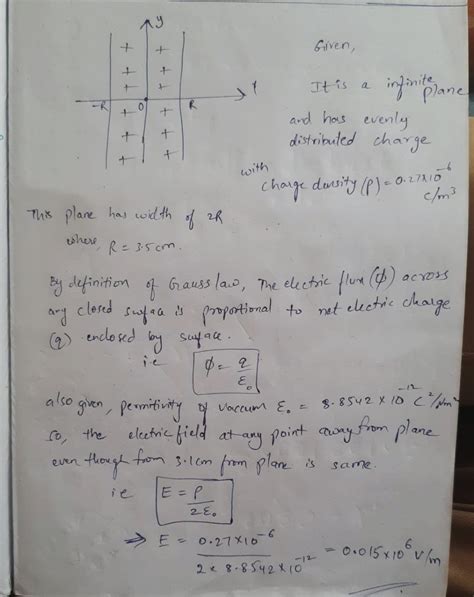 y
Given,
+ +
+ +
+ +
It is a infinite
plane
-R 0 R x
+ +
+ +
+ +
and has evenly
distributed charge
with
charge density (ρ) = 0.27×10⁻⁶
C/m³
This plane has width of 2R
where, R = 3.5cm.
By definition of Gauss law, The electric flux (φ) across
any closed surface is proportional to net electric charge
(q) enclosed by surface.
ie φ = q/ε₀
also given, permitivity of vaccum ε₀ = 8.8542 × 10⁻¹² C²/Nm²
so, the electric field at any point away from plane
even though from 3.1cm from plane is same.
ie E = ρ/2ε₀
⇒ E = 0.27×10⁻⁶ / 2× 8.8542×10⁻¹² = 0.015×10⁶ V/m